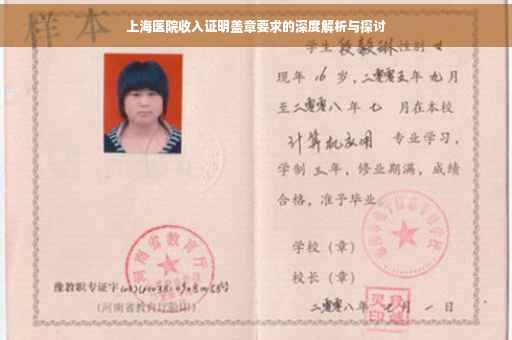 上海医院收入证明盖章要求的深度解析与探讨
样本
学生 段毅琳 性别 女
现年 16 岁，二零零五年 九 月
至二零零八年 七 月在本校
计算机应用 专业学习，
学制 三 年，修业期满，成绩
合格，准予毕业
学校（章）
校长（章）
二零零八年 七 月 一 日
河南省教育厅
豫教职专证字
（河南省教育厅验印）